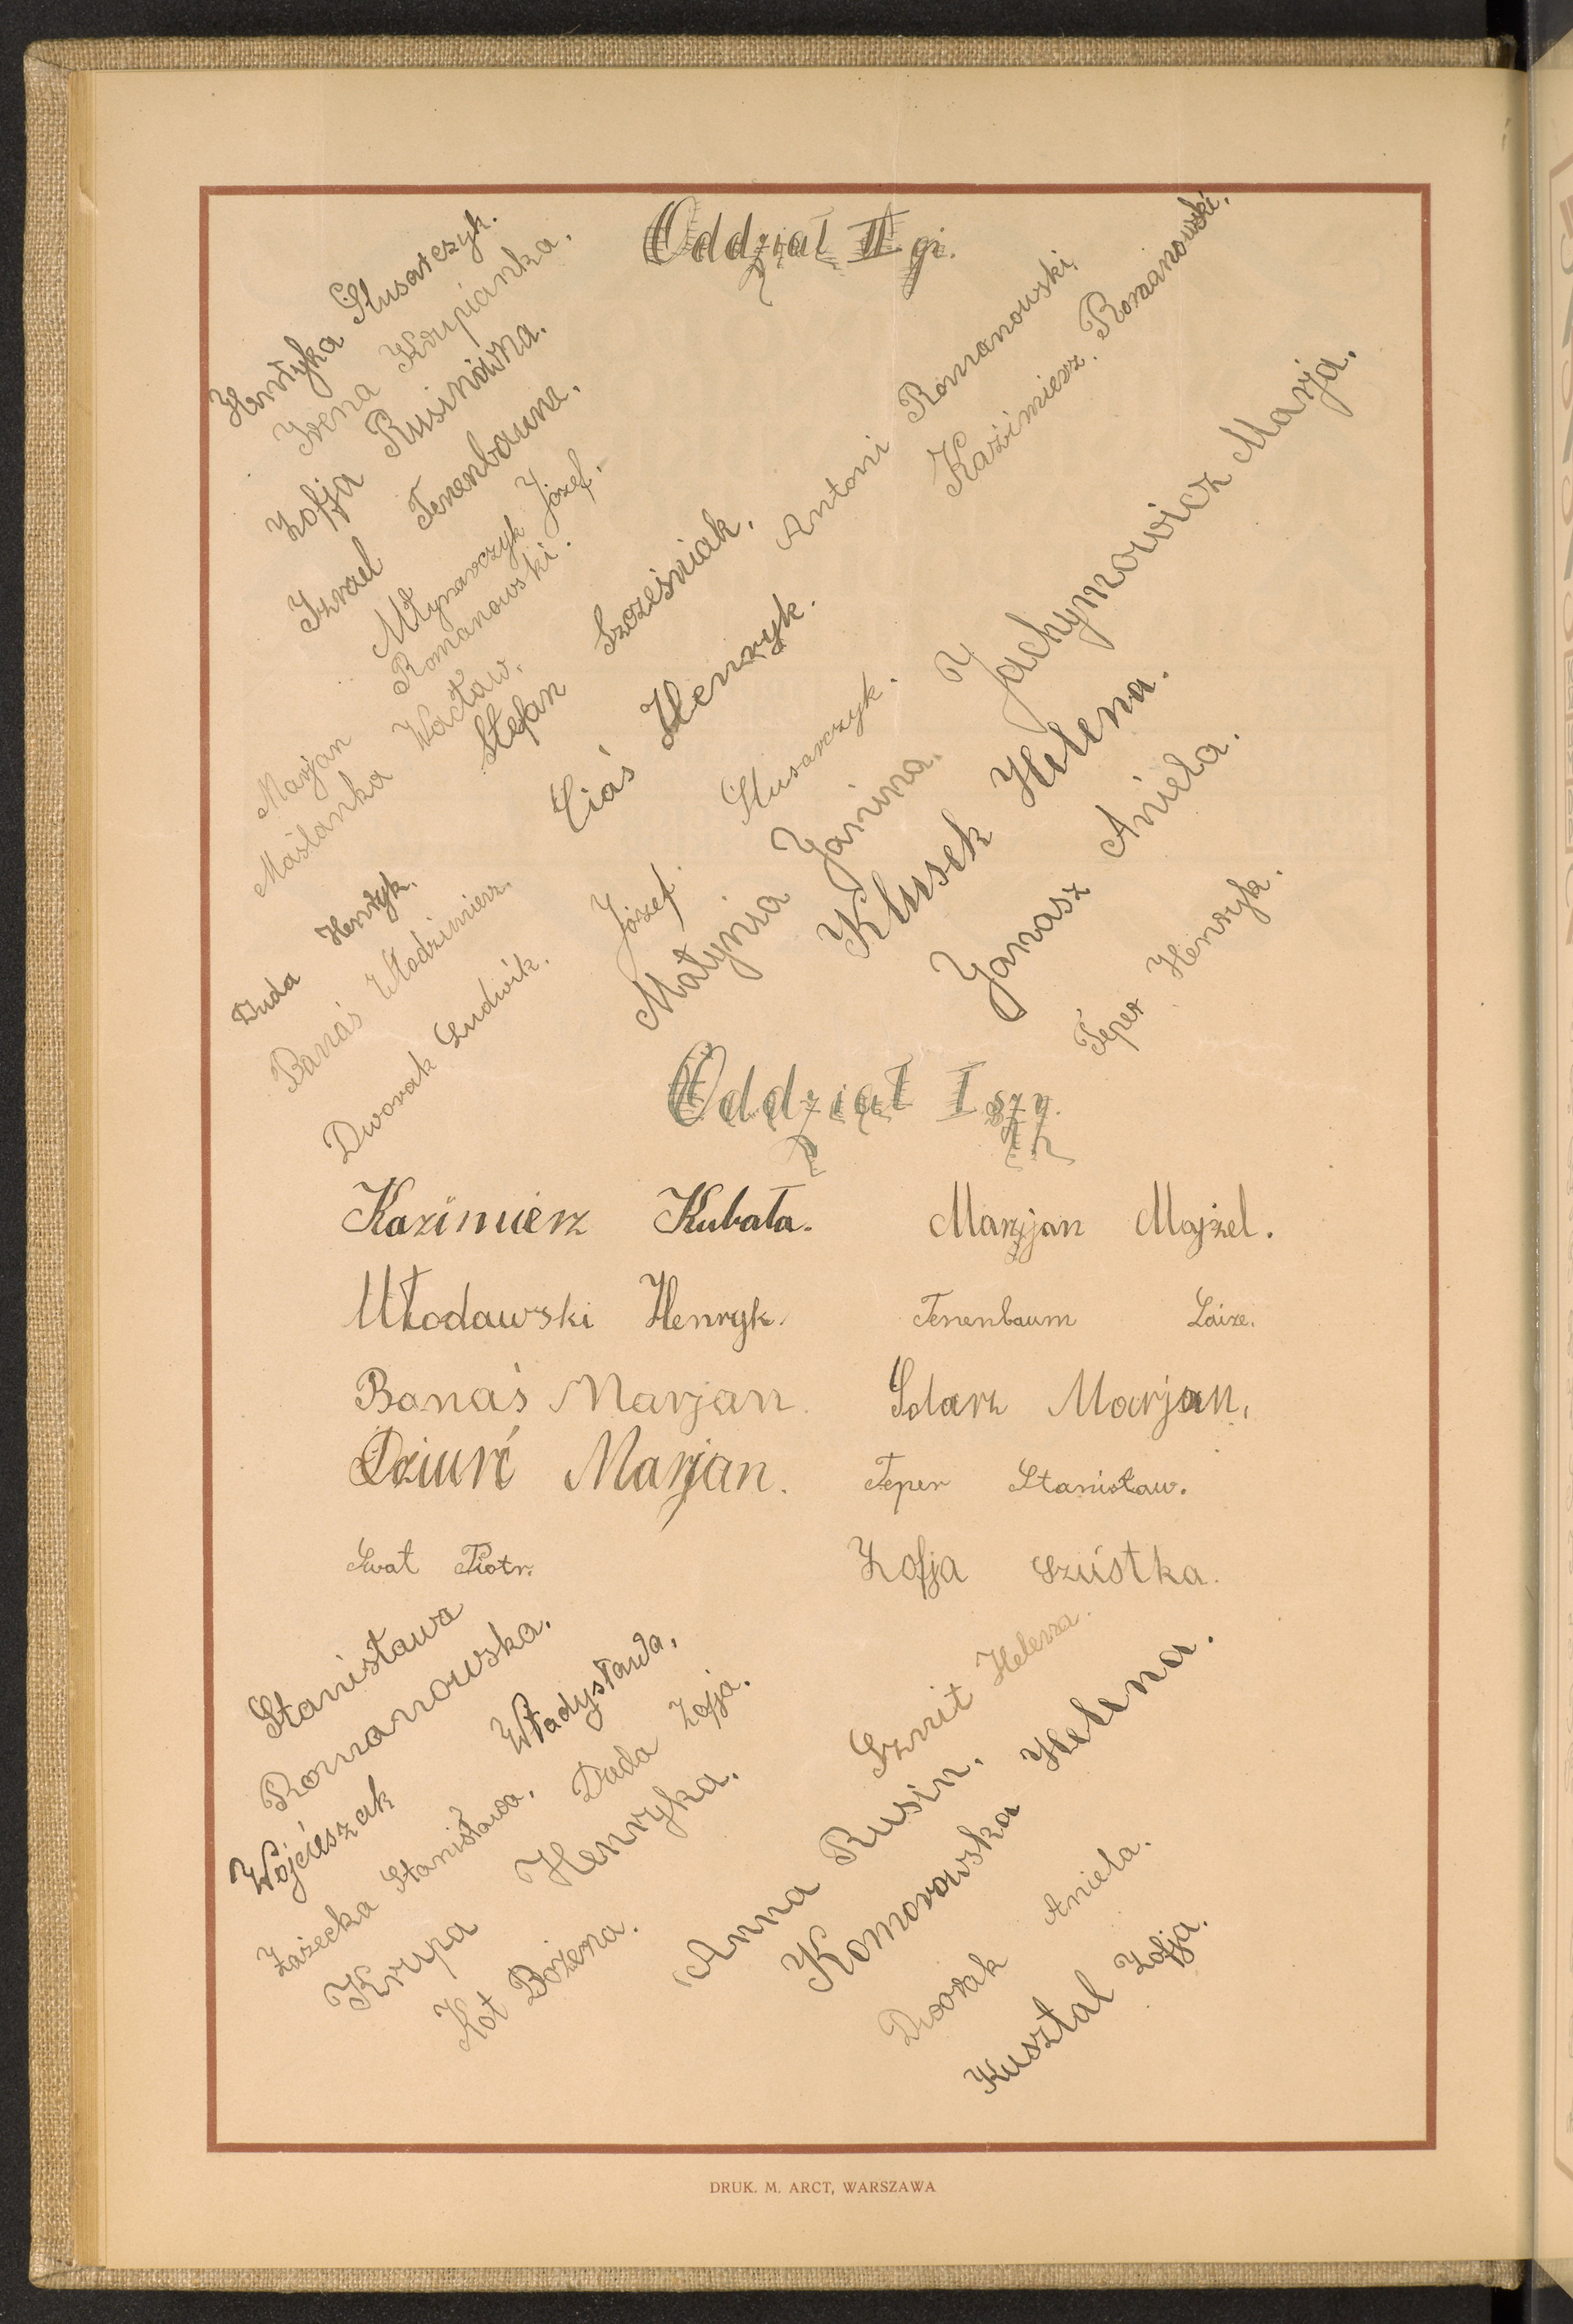 Oddział II gi.
Henryka Ślusarczyk.
Irena Krupianka.
Zofja Rusinówna.
Izrael Tenenbaum.
Młynarczyk Józef.
Marjan Romanowski.
Maślanka Wacław.
Stefan Szcześniak.
Antoni Romanowski
Kazimierz. Romanowski.
Ciaś Henryk.
Duda Henryk.
Banaś Włodzimierz.
Dworak Ludwik.
Józef Ślusarczyk.
Matynia Janina.
Jachymowicz Marja.
Klusek Helena.
Janasz Aniela.
Teper Henryk.
Oddział I szy.
Kazimierz Kubała. Marjan Majzel.
Włodawski Henryk. Tenenbaum Laize.
Banaś Marjan. Marjan.
Marjan. Teper Stanisław.
Piotr. Zofja Szustka.
Stanisława
Romanowska.
Wojcieszak Władysława.
Zażecka Stanisława.
Duda Zofja.
Krupa Henryka.
Kot Bożena.
Szmit Helena.
Anna Rusin.
Komorowska Helena.
Dworak Aniela.
Kusztal Zofja.
DRUK. M. ARCT, WARSZAWA